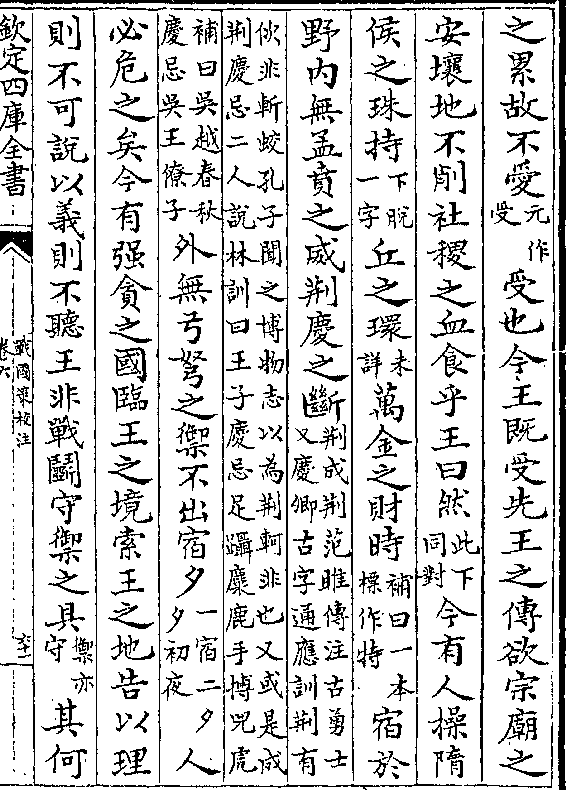 之累故不愛元作受受也今王既受先王之傳欲宗廟之
安壤地不削社稷之血食乎王曰然此下同對今有人操隋
侯之珠持下脫一字丘之環未詳萬金之財時補曰一本標作特宿於
野内無孟賁之威荆慶之斷荆成荆范睢傳注古勇士又慶卿古字通應訓荆有
佽非斬蛟孔子聞之博物志以為荆軻非也又或是成荆慶忌二人說林訓曰王子慶忌足躡麋鹿手搏兕虎
補曰吳越春秋慶忌吳王僚子外無弓弩之禦不出宿夕一宿二夕夕初夜人
必危之矣今有强貪之國臨王之境索王之地告以理
則不可說以義則不聽王非戰鬭守禦之具禦亦守其何
欽定四庫全書
戰國策校注
卷六
六十一